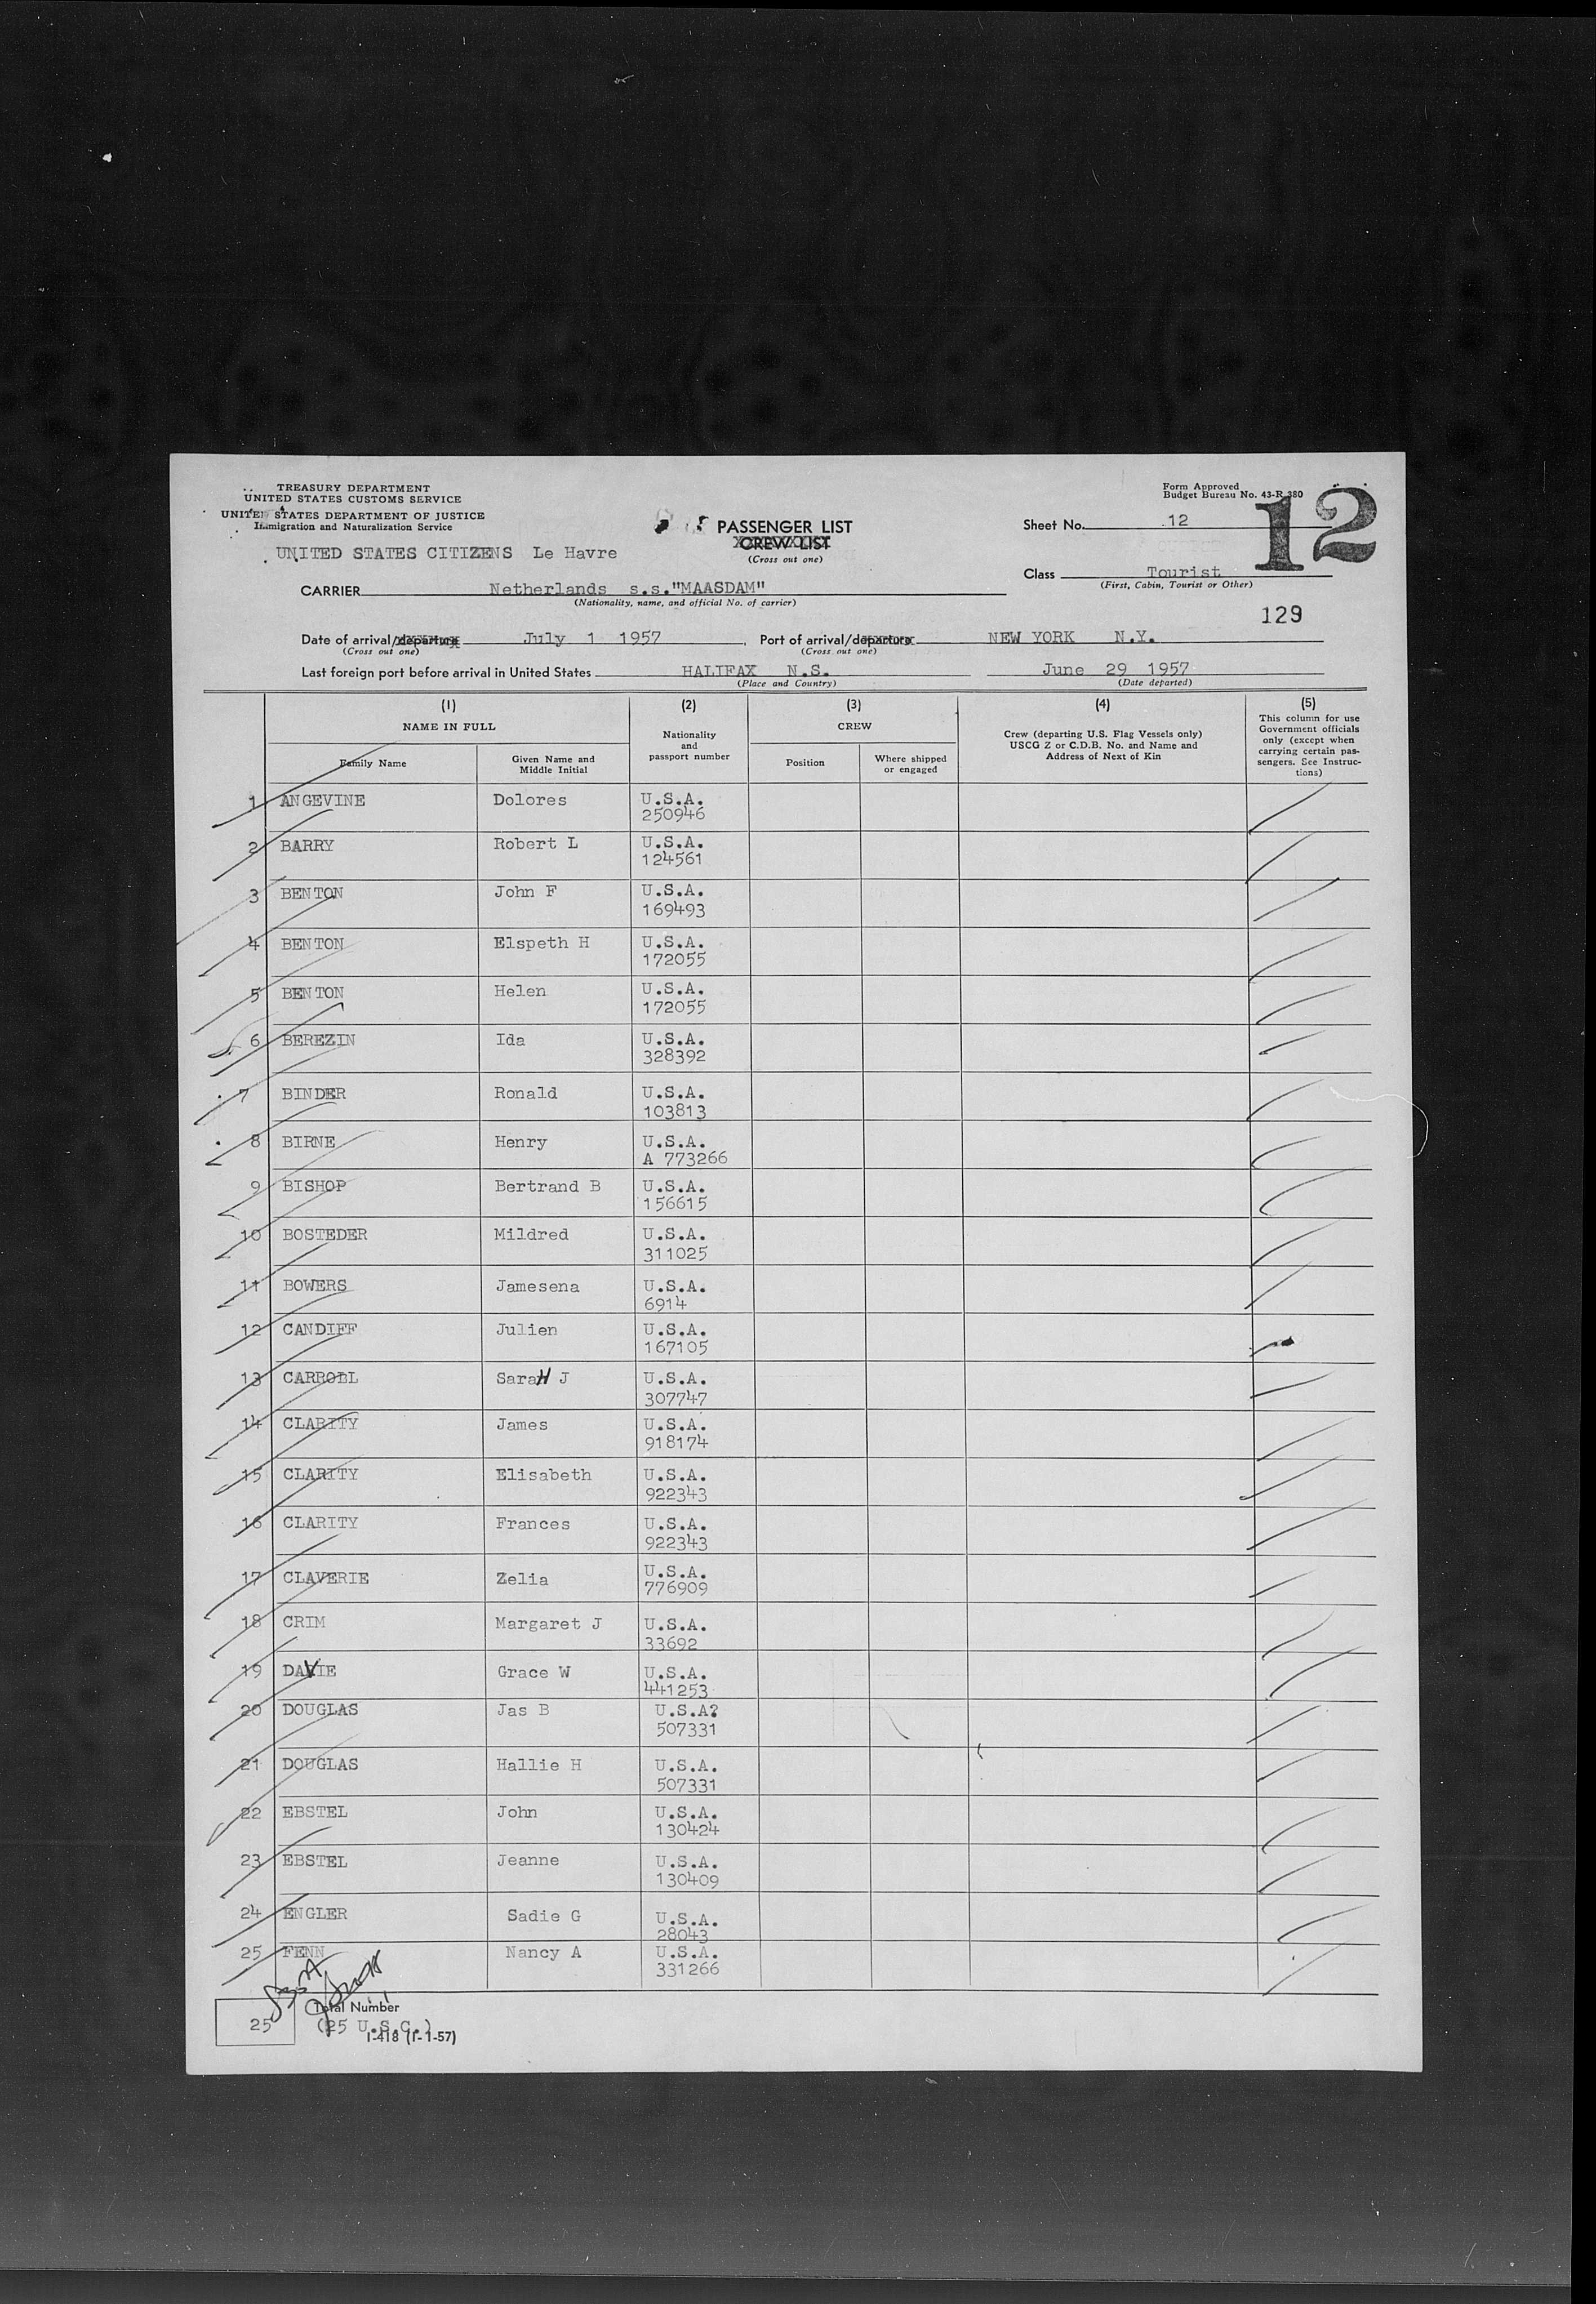 TREASURY DEPARTMENT
UNITED STATES CUSTOMS SERVICE
UNITED STATES DEPARTMENT OF JUSTICE
Immigration and Naturalization Service
UNITED STATES CITIZENS Le Havre
PASSENGER LIST
CREW LIST
(Cross out one)
Form Approved
Budget Bureau No. 43-R 380
Sheet No. 12
12
Class Tourist
(First, Cabin, Tourist or Other)
CARRIER Netherlands s.s."MAASDAM"
(Nationality, name, and official No. of carrier)
129
Date of arrival/departure July 1 1957, Port of arrival/departure NEW YORK N.Y.
(Cross out one) (Cross out one)
Last foreign port before arrival in United States HALIFAX N.S. June 29 1957
(Place and Country) (Date departed)
(1) (2) (3) (4) (5)
NAME IN FULL
Family Name
Given Name and
Middle Initial
Nationality
and
passport number
CREW
Position
Where shipped
or engaged
Crew (departing U.S. Flag Vessels only)
USCG Z or C.D.B. No. and Name and
Address of Next of Kin
This column for use
Government officials
only (except when
carrying certain pas-
sengers. See Instruc-
tions)
1 ANGEVINE Dolores U.S.A.
250946
2 BARRY Robert L U.S.A.
124561
3 BENTON John F U.S.A.
169493
4 BENTON Elspeth H U.S.A.
172055
5 BENTON Helen U.S.A.
172055
6 BEREZIN Ida U.S.A.
328392
7 BINDER Ronald U.S.A.
103813
8 BIRNE Henry U.S.A.
A 773266
9 BISHOP Bertrand B U.S.A.
156615
10 BOSTEDER Mildred U.S.A.
311025
11 BOWERS Jamesena U.S.A.
6914
12 CANDIFF Julien U.S.A.
167105
13 CARROLL SaraH J U.S.A.
307747
14 CLARITY James U.S.A.
918174
15 CLARITY Elisabeth U.S.A.
922343
16 CLARITY Frances U.S.A.
922343
17 CLAVERIE Zelia U.S.A.
776909
18 CRIM Margaret J U.S.A.
33692
19 DAVIE Grace W U.S.A.
441253
20 DOUGLAS Jas B U.S.A?
507331
21 DOUGLAS Hallie H U.S.A.
507331
22 EBSTEL John U.S.A.
130424
23 EBSTEL Jeanne U.S.A.
130409
24 ENGLER Sadie G U.S.A.
28043
25 FENN Nancy A U.S.A.
331266
25
Total Number
(25 U.S.C.)
I-418 (1-1-57)